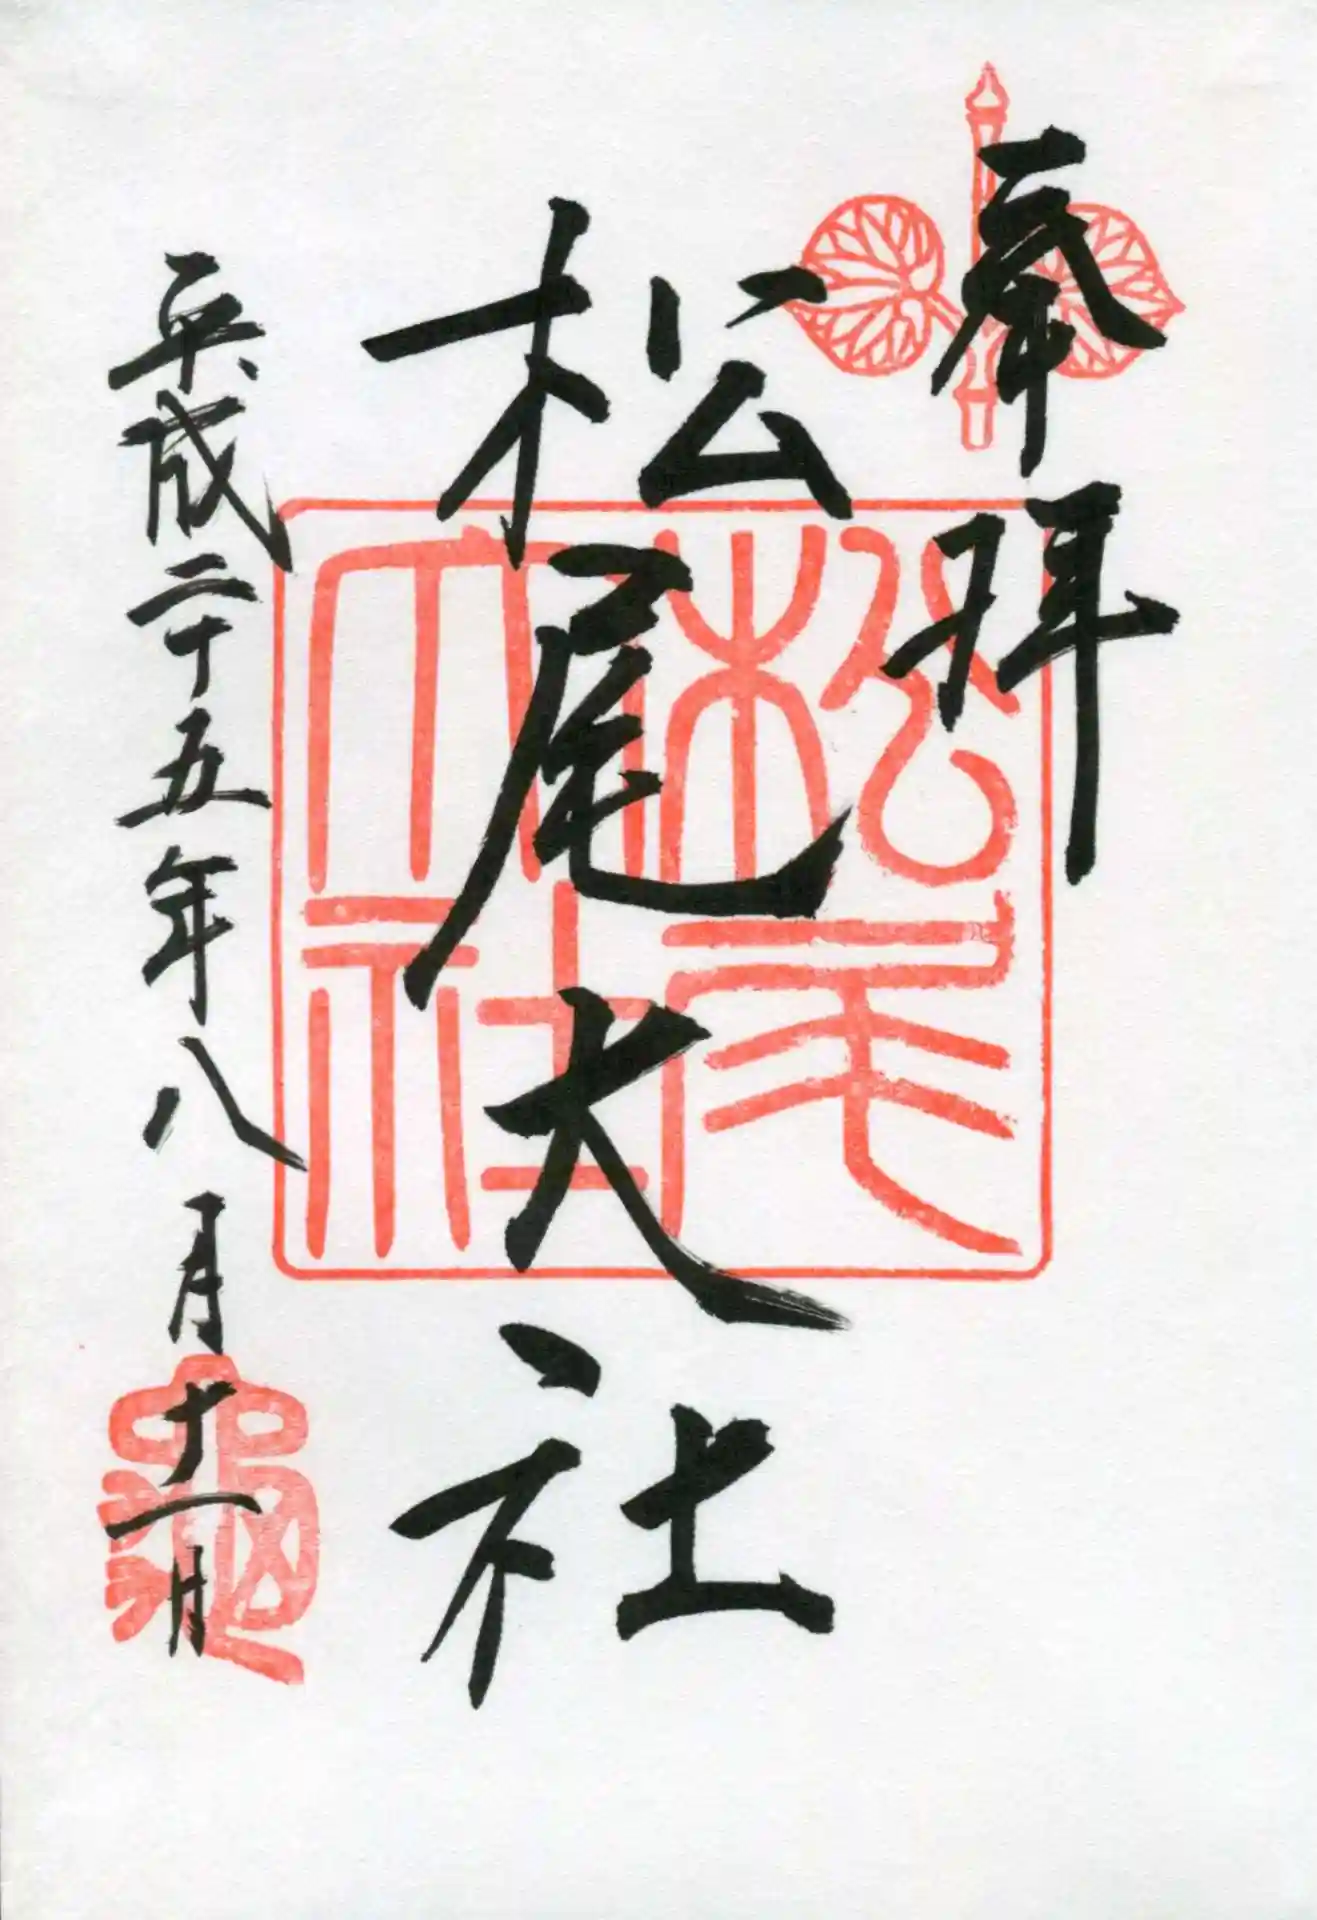 奉拝
松尾大社
松尾大社
平成二十五年八月十一日
亀